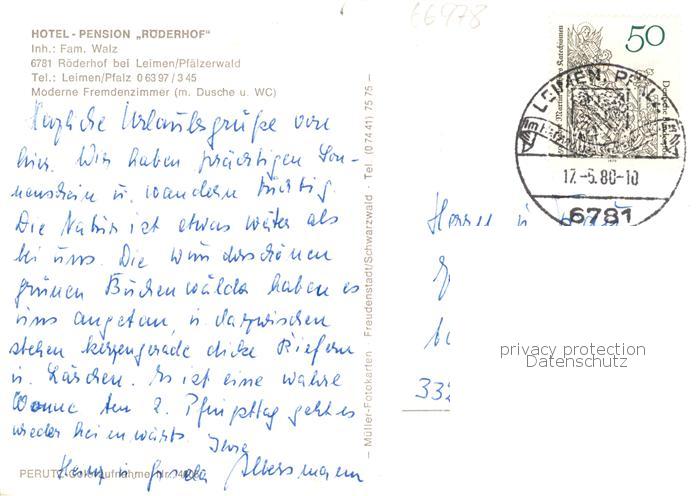 66978
HOTEL - PENSION „RÖDERHOF"
Inh.: Fam. Walz
6781 Röderhof bei Leimen/Pfälzerwald
Tel.: Leimen/Pfalz 0 63 97 / 3 45
Moderne Fremdenzimmer (m. Dusche u. WC)
Herzliche Urlaubsgrüße von
hier. Wir haben prächtigen Son-
nenschein u. wandern tüchtig.
Die Natur ist etwas weiter als
bei uns. Die wunderschönen
grünen Buchenwälder haben es
uns angetan, u. dazwischen
stehen kerzengerade dicke Kiefern
u. Lärchen. Es ist eine wahre
Wonne. Am 2. Pfingsttag geht es
wieder heimwärts. Ihre
Heinz u. Albersmann
PERUTZ-Color-Aufnahme Nr.
— Müller-Fotokarten · Freudenstadt/Schwarzwald · Tel. (0 74 41) 75 75 —
50
LEIMEN, PFALZ
17.-5.80-10
6781
Herrn u.
332
privacy protection
Datenschutz